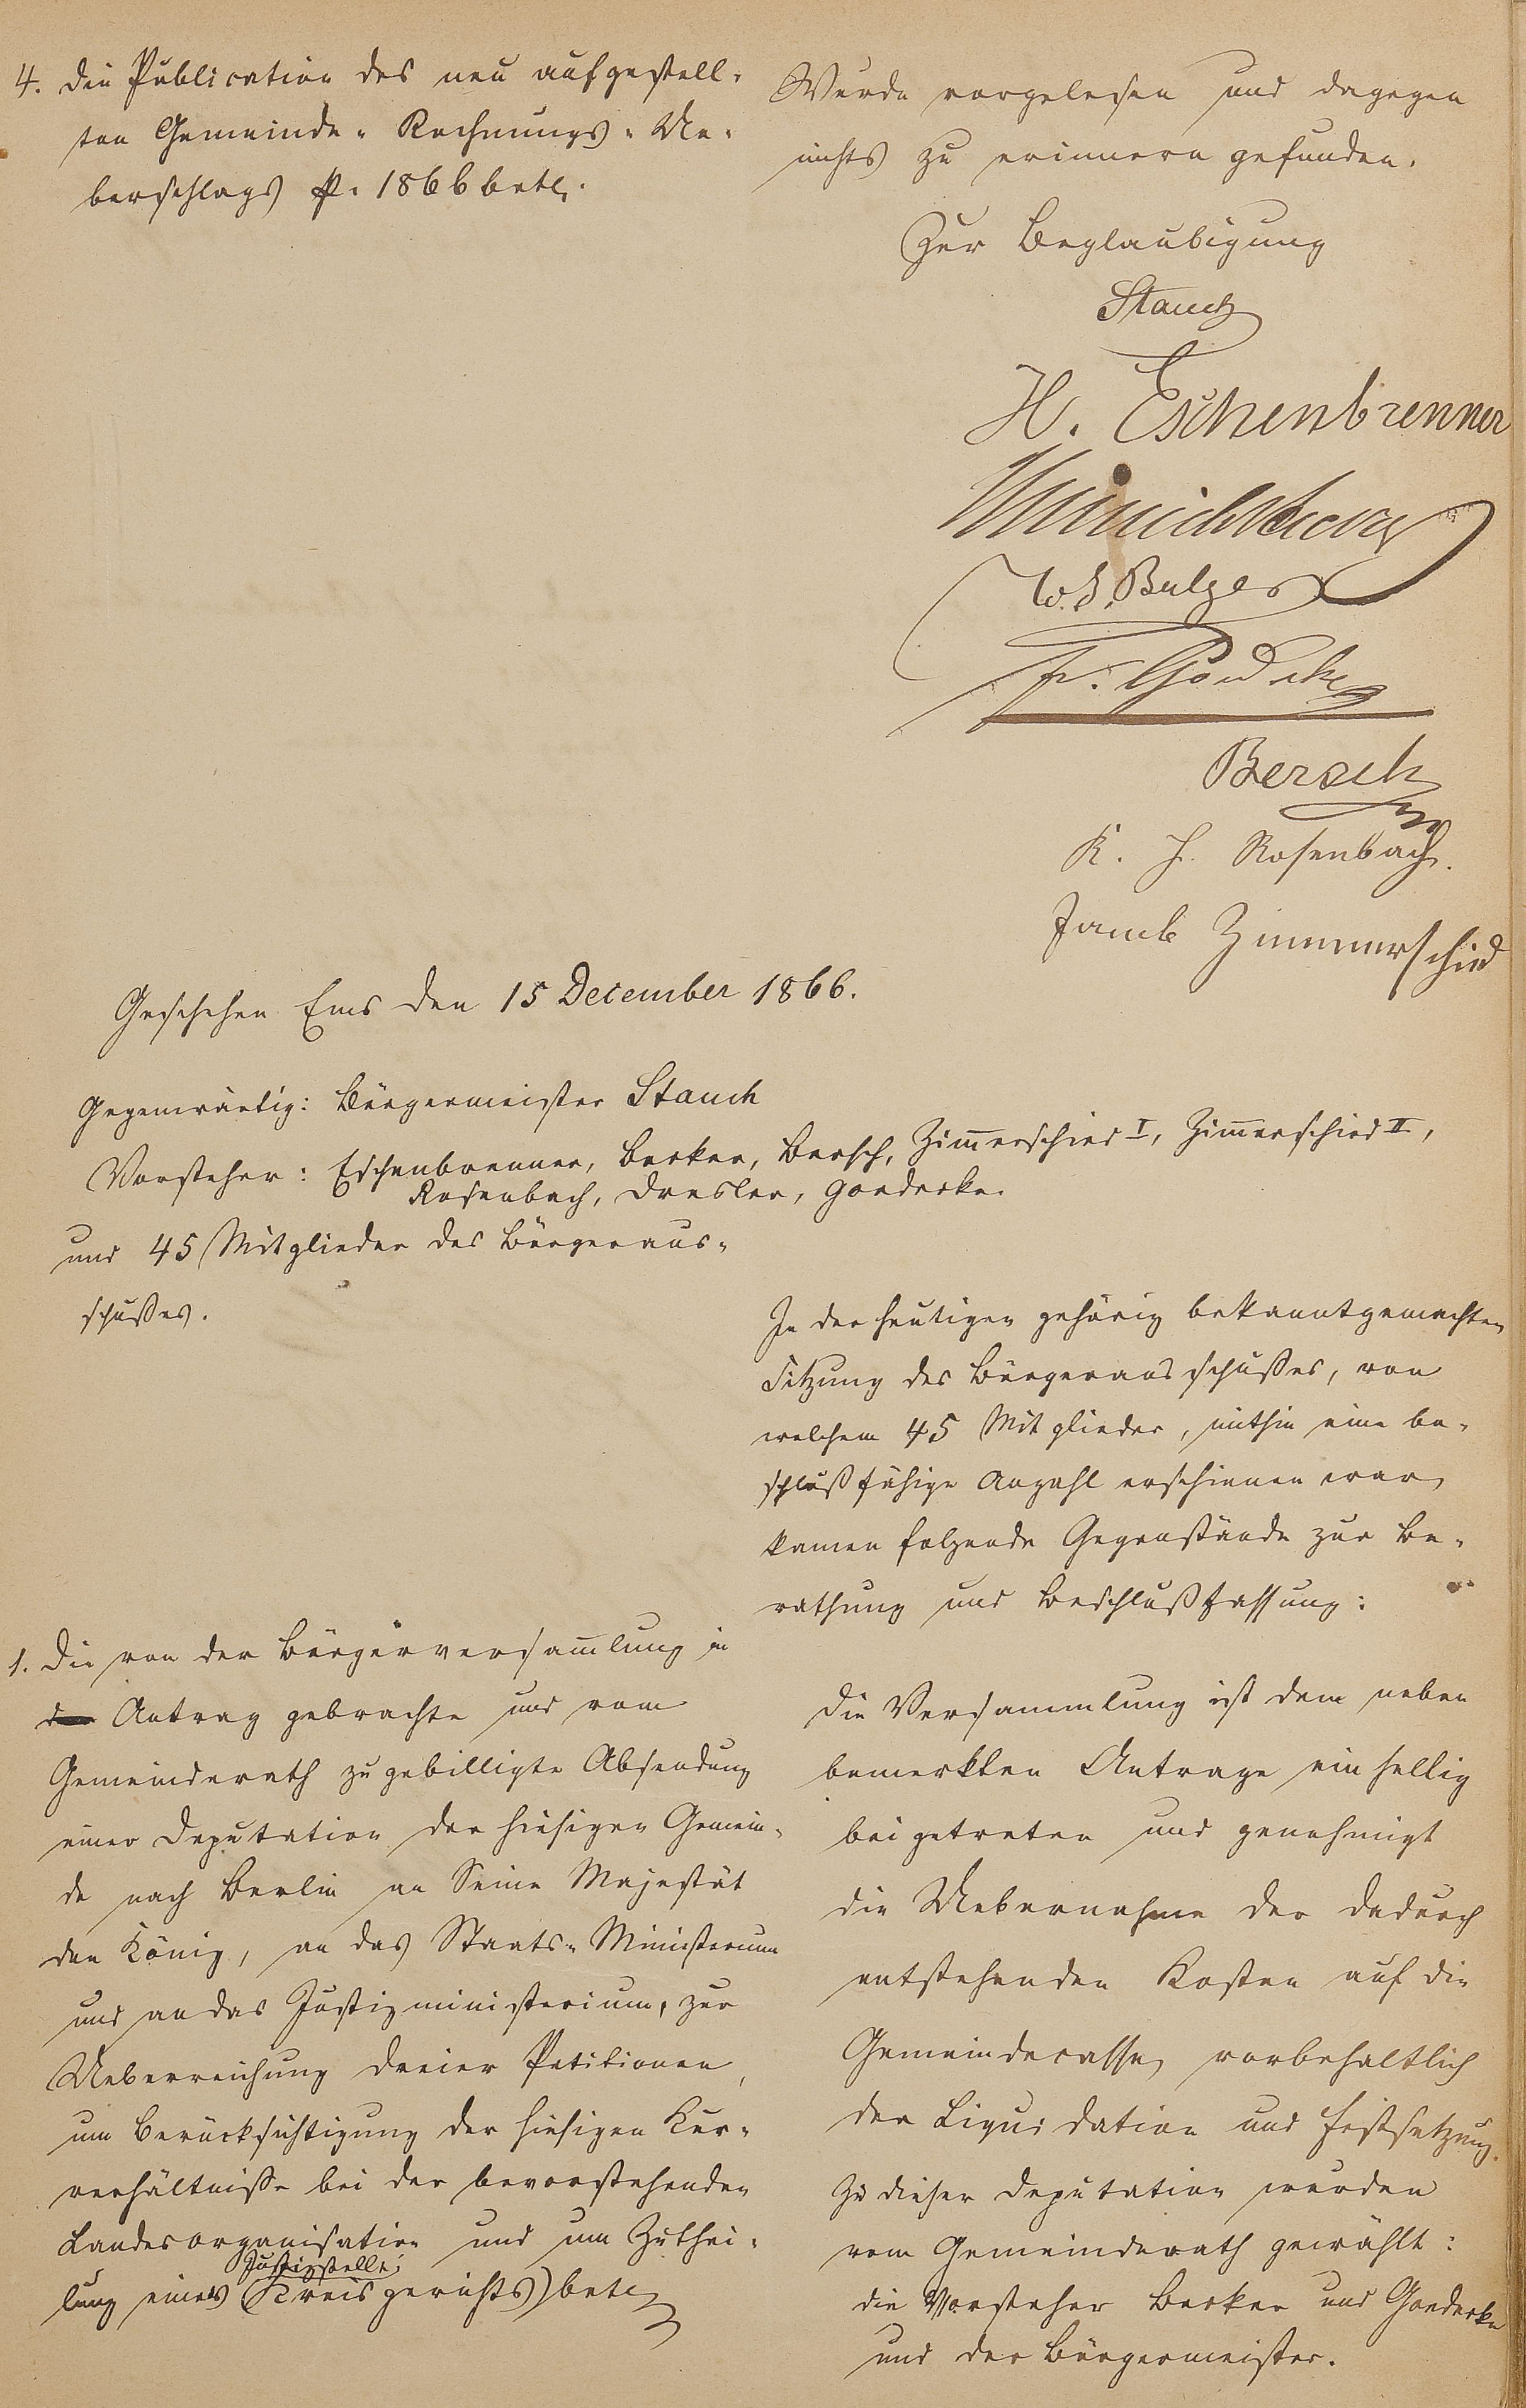 4. die Publication des neu aufgestell-
ten Gemeinde-Rechnungs-Ue-
berschlags p. 1866 betr.
Wurde vorgelesen und dagegen
nichts zu erinnern gefunden.
Zur Beglaubigung
Stauch
H. Eschenbrenner
Bersch
K. H. Rosenbach.
Jacob Zimmerschied
Geschehen Ems den 15 December 1866.
Gegenwärtig: Bürgermeister Stauch
Vorsteher: Eschenbrenner, Becker, Bersch, Zimerschied I, Zimerschied II,
Rosenbach, Dresler, Goedecke.
und 45 Mitglieder des Bürgeraus-
schußes.
In der heutigen gehörig bekanntgemachten
Sitzung des Bürgerausschußes, von
welchem 45 Mitglieder, mithin eine be-
schlußfähige Anzahl erschienen war,
kamen folgende Gegenstände zur Be-
rathung und Beschlußfassung:
1. Die von der Bürgerversamlung in
Antrag gebrachte und vom
Gemeinderath zugebilligte Absendung
einer Deputation der hiesigen Gemein-
de nach Berlin an Seine Majestät
den König, an das Staats-Ministerium
und an das Justizministerium, zur
Ueberreichung dreier Petitionen,
um Berücksichtigung der hiesigen Kur-
verhältniße bei der bevorstehenden
Landesorganisation und um Zuthei-
Justizstelle
lung eines (Kreisgerichts) betr.
Die Versammlung ist dem neben
bemerkten Antrage einhellig
beigetreten und genehmigt
die Uebernahme der dadurch
entstehenden Kosten auf die
Gemeindecasse, vorbehaltlich
der Liquidation und Festsetzung.
Zu dieser Deputation wurden
vom Gemeinderath gewählt:
die Vorsteher Becker und Goedecke
und der Bürgermeister.